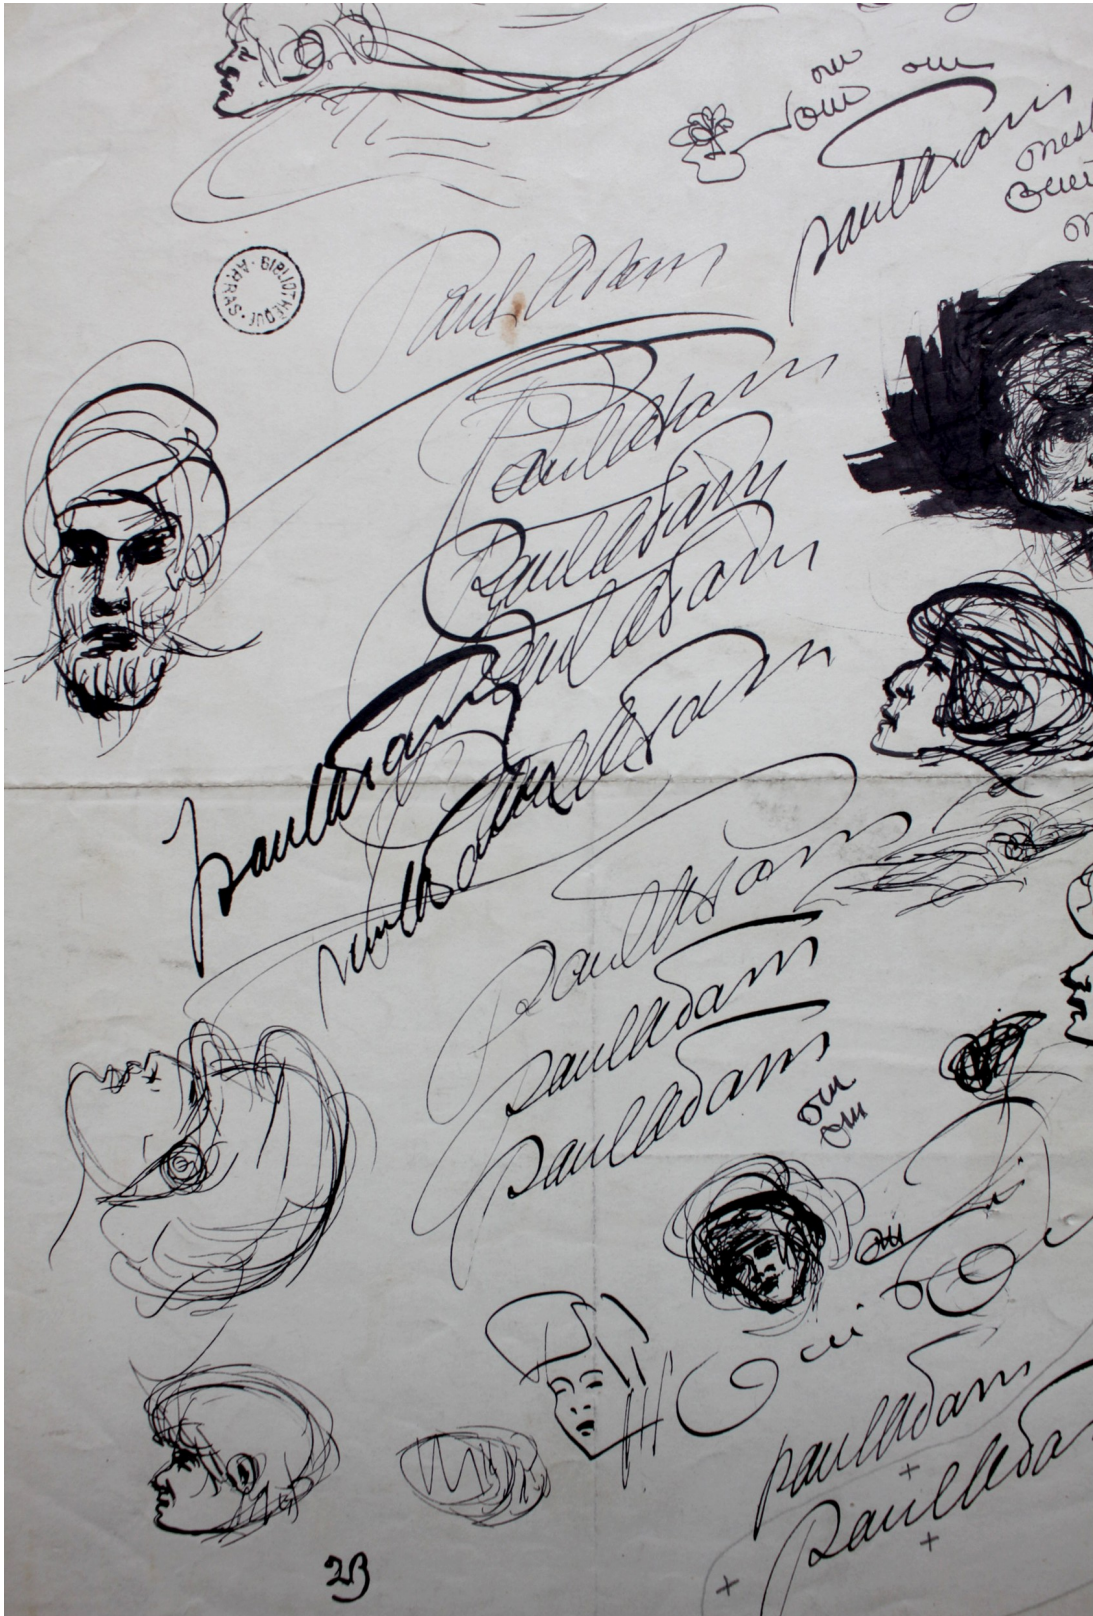 ou ou
oui
paul Adam
BIBLIOTHÈQUE · ARRAS ·
Paul Adam
Paul Adam
Paul Adam
Paul Adam
paul Adam
Paul Adam
paul Adam
paul Adam
paul Adam
ou
ou
oui
Oui
paul Adam
paul Ada
23